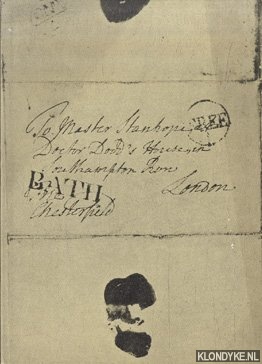 To Master Stanhope
FREE
Doctor Dodd's House in
Southampton Row
London
BATH
Chesterfield
KLONDYKE.NL